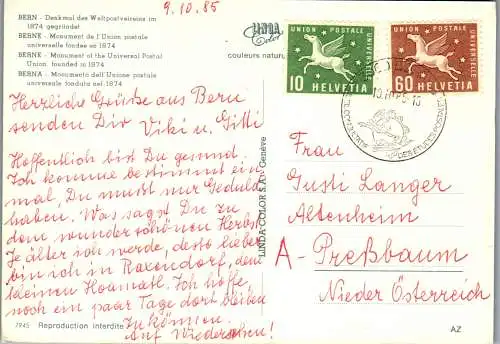 9.10.85
BERN - Denkmal des Weltpostvereins im
1874 gegründet
BERNE - Monument de l'Union postale
universelle fondée en 1874
BERNE - Monument of the Universal Postal
Union founded in 1874
BERNA - Monumento dell'Unione postale
universale fondata nel 1874
LINDA
Color
couleurs natur
Herzliche Grüße aus Bern
senden Dir Viki u. Gitti
Hoffentlich bist Du gesund.
Ich komme bestimmt ein
mal, Du mußt nur Geduld
haben. Was sagst Du zu
dem wunderschönen Herbst
Je älter ich werde, desto lieber
bin ich in Raxendorf, dem
kleinen Heimatl. Ich hoffe,
noch ein paar Tage dort bleiben
zu können.
Auf Wiedersehen!
7945 Reproduction interdite
LINDA COLOR S.A. Genève
UNION POSTALE
UNIVERSELLE
10 HELVETIA
UNION POSTALE
UNIVERSELLE
60 HELVETIA
Frau
Gusti Langer
Altenheim
A-Preßbaum
Nieder Österreich
AZ